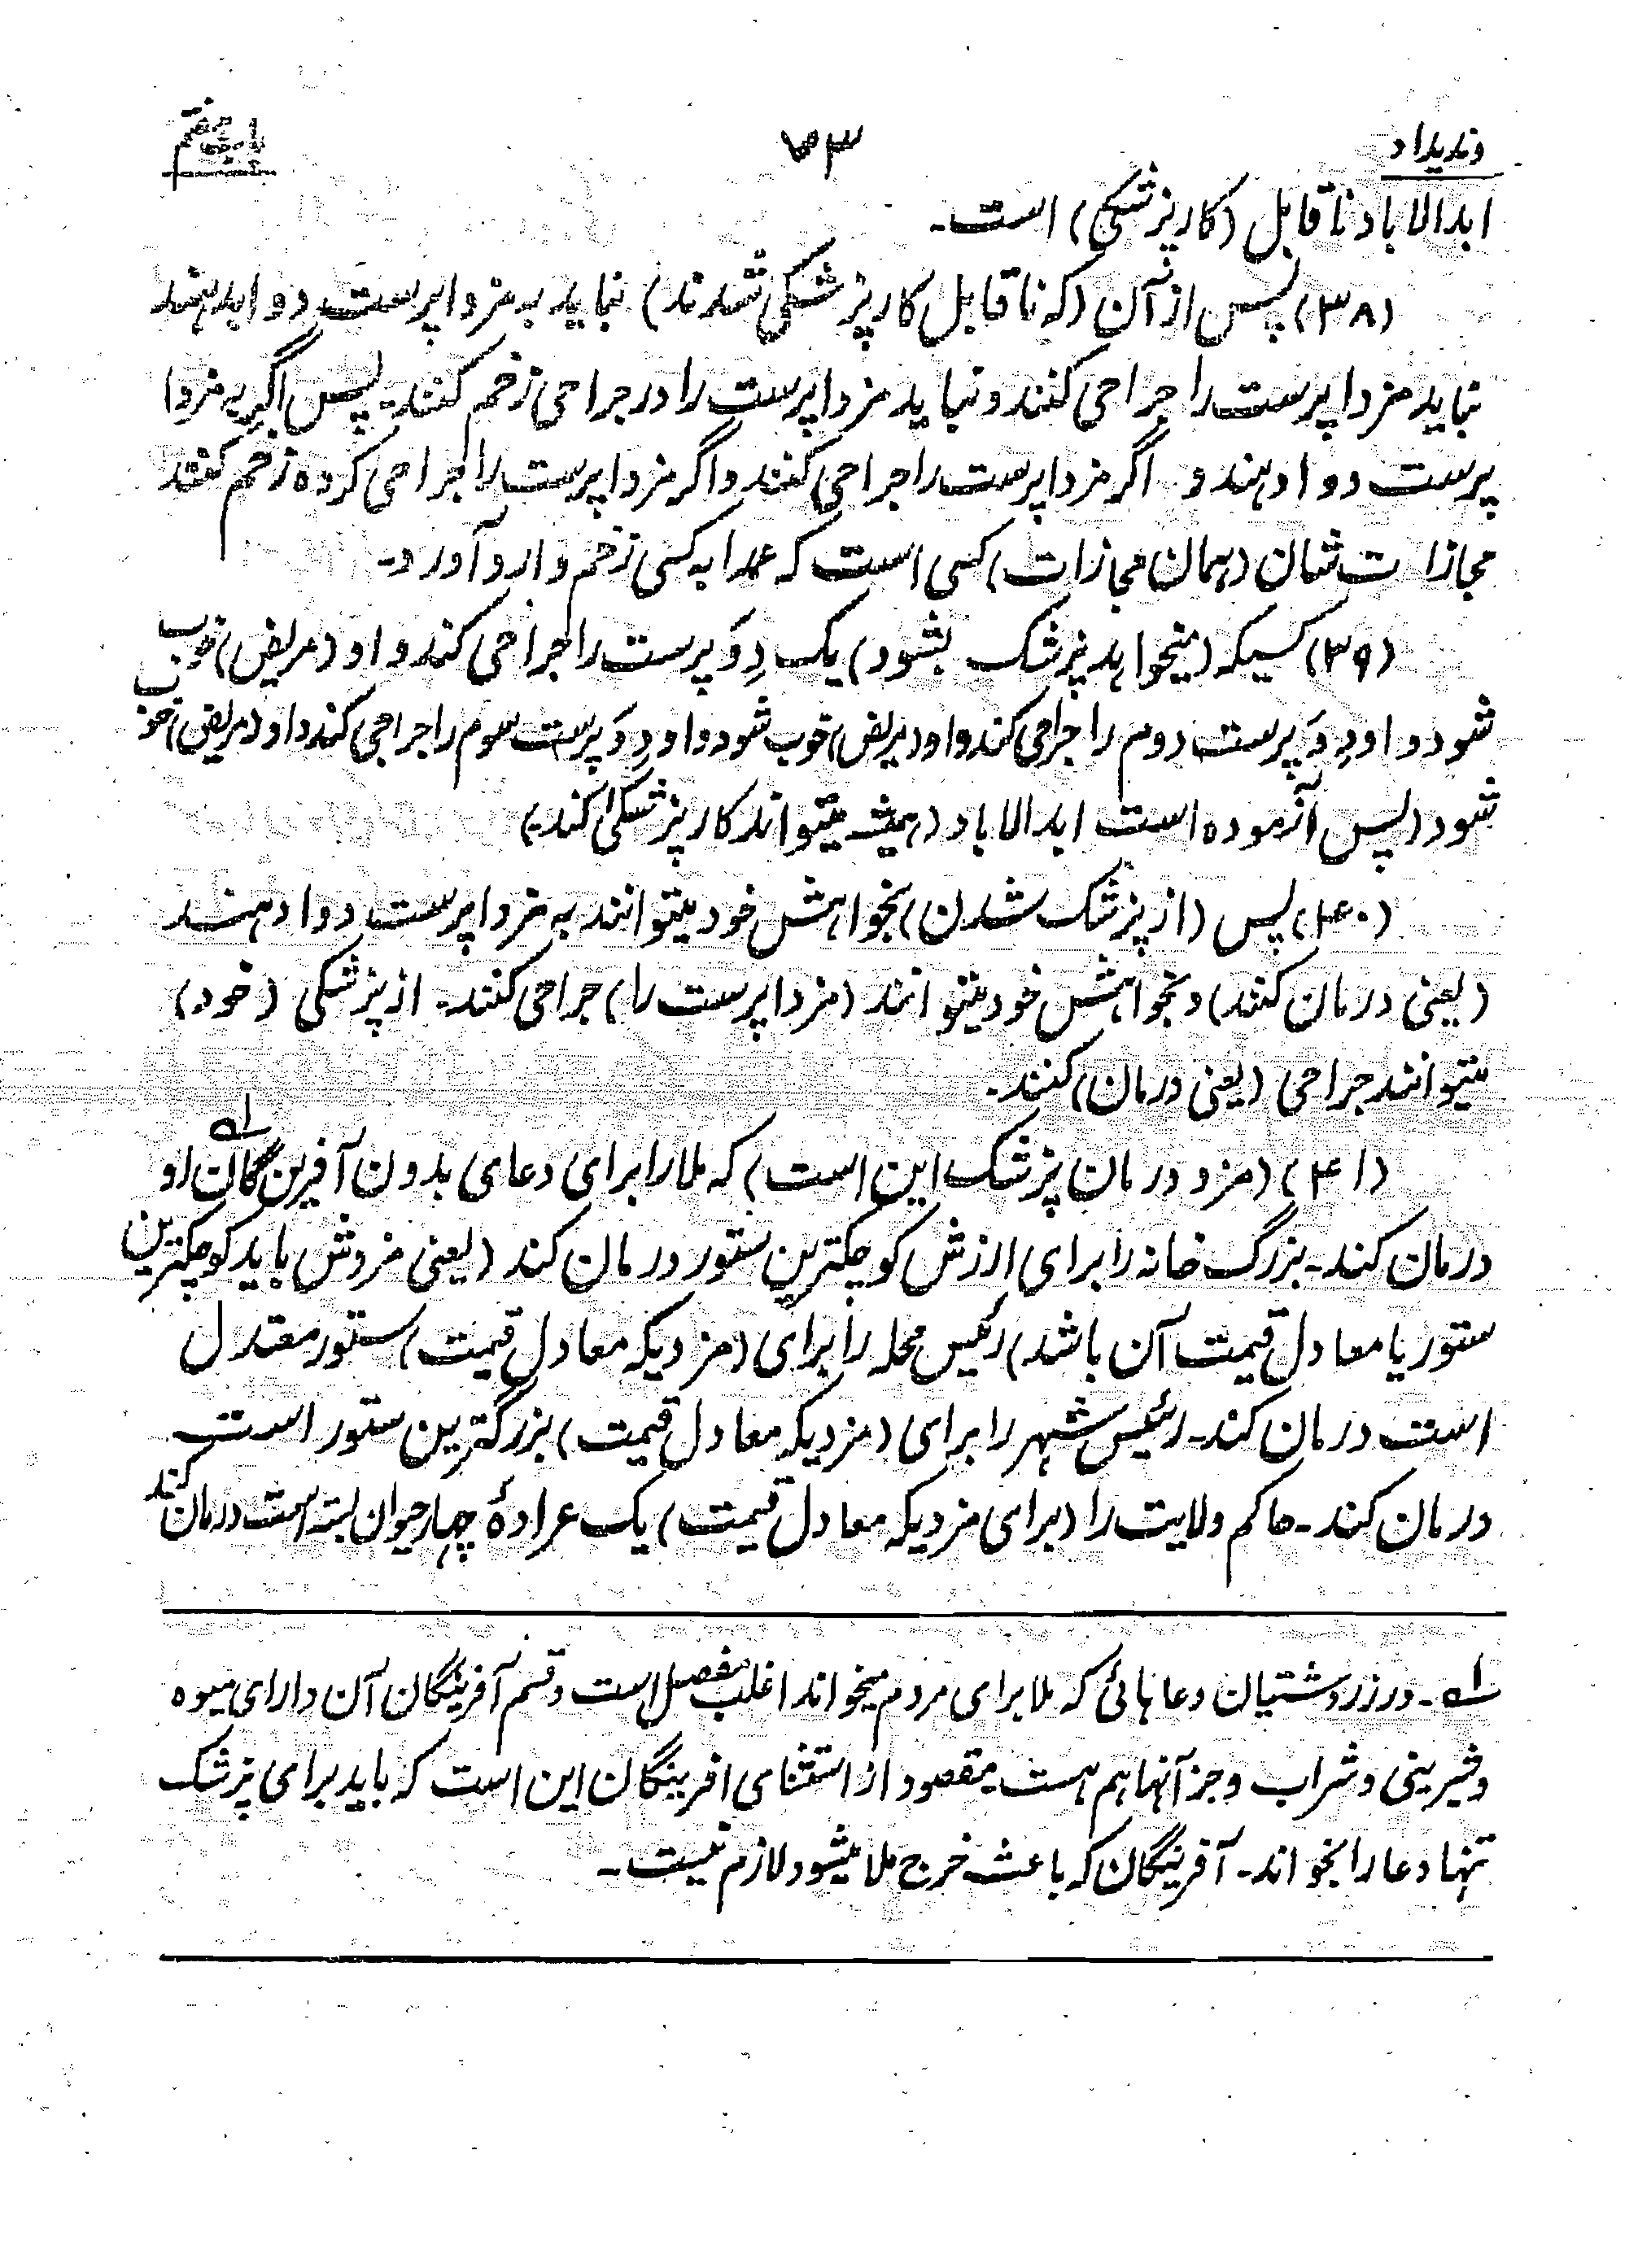 وندیداد
۷۳
باب هفتم
ابدالاباد ناقابل (کار پزشکی) است۔
(۳۸) پس از آن (که ناقابل کار پزشکی شدند) نباید به مزداپرست دوا بدهند
نباید مزداپرست را جراحی کنند و نباید مزداپرست را در جراحی زخم کنند۔ پس اگر به مزدا
پرست دوا دهند و اگر مزداپرست را جراحی کنند و اگر مزداپرست را جراحی کرده زخم کنند
مجازات شان (همان مجازات) کسی است که عمدا به کسی زخم وارد آورد۔
(۳۹) کسیکه (میخواهد پزشک بشود) یک دِوَپرست را جراحی کند و او (مریض) خوب
شود و او دِوَپرست دوم را جراحی کند و او (مریض) خوب شود و او دِوَپرست سوم را جراحی کند و او (مریض) خوب
شود (پس) آزموده است ابدالاباد (همیشه میتواند کار پزشکی کند)
(۴۰) پس (از پزشک شدن) بخواهش خود میتوانند به مزداپرست دوا دهند
(یعنی درمان کنند) و بخواهش خود میتوانند (مزداپرست را) جراحی کنند۔ از پزشکی (خود)
میتوانند جراحی (یعنی درمان) کنند۔
(۴۱) (مزد درمان پزشک این است) که ملا را برای دعای بدون آفرین گان ۱ه او
درمان کند۔ بزرگ خانه را برای ارزش کوچکترین ستور درمان کند (یعنی مزدش باید کوچکترین
ستور یا معادل قیمت آن باشد) رئیس محله را برای (مزدیکه معادل قیمت) ستور معتدل
است درمان کند۔ رئیس شهر را برای (مزدیکه معادل قیمت) بزرگترین ستور است
درمان کند۔ حاکم ولایت را (برای مزدیکه معادل قیمت) یک عرادهٔ چهار حیوان بسته است درمان کند
۱ه۔ در زردشتیان دعا هائی که ملا برای مردم میخواند اغلب مفصل است و قسم آفرینگان آن دارای میوه
و شیرینی و شراب و جز آنها هم هست مقصود از استثنای افرینگان این است که باید برای پزشک
تنها دعا را بخواند۔ آفرینگان که باعث خرج ملا میشود لازم نیست۔